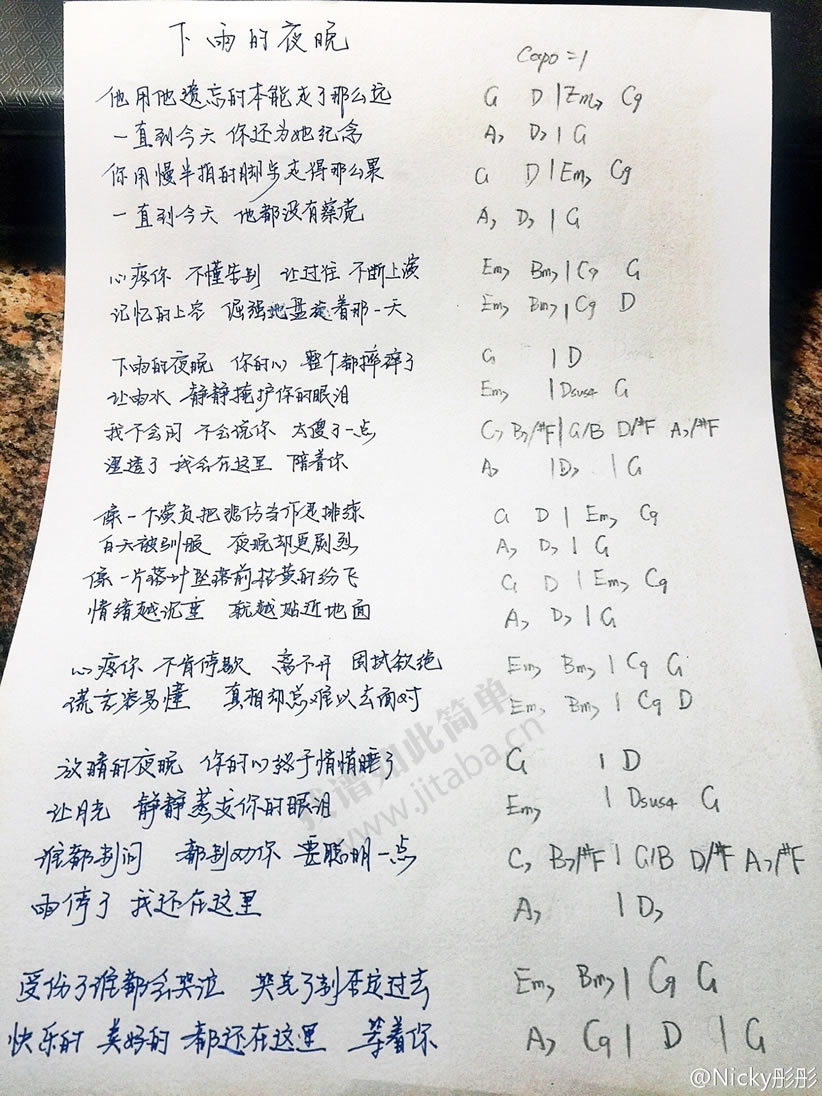 下雨的夜晚
Capo=1
他用他遗忘的本能走了那么远 G D | Em7 C9
一直到今天 你还为她纪念 A7 D7 | G
你用慢半拍的脚步走得那么累 G D | Em7 C9
一直到今天 他都没有察觉 A7 D7 | G
心疼你 不懂告别 让过往 不断上演 Em7 Bm7 | C9 G
记忆的上空 倔强地盘旋着那一天 Em7 Bm7 | C9 D
下雨的夜晚 你的心 整个都摔碎了 G | D
让雨水 静静掩护你的眼泪 Em7 | Dsus4 G
我不会问 不会说你 太傻了一点 C7 B7/#F | G/B D/#F A7/#F
湿透了 我会在这里 陪着你 A7 | D7 | G
像一个演员把悲伤当作是排练 G D | Em7 C9
白天被驯服 夜晚却更剧烈 A7 D7 | G
像一片落叶坠落前枯黄的纷飞 G D | Em7 C9
情绪越沉重 就越贴近地面 A7 D7 | G
心疼你 不肯停歇 离不开 固执欲绝 Em7 Bm7 | C9 G
谎言容易懂 真相却总难以去面对 Em7 Bm7 | C9 D
放晴的夜晚 你的心终于悄悄睡了 G | D
让月光 静静蒸发你的眼泪 Em7 | Dsus4 G
谁都别问 都别劝你 要聪明一点 C7 B7/#F | G/B D/#F A7/#F
雨停了 我还在这里 A7 | D7
受伤了谁都会哭泣 哭完了别否定过去 Em7 Bm7 | C9 G
快乐的 美好的 都还在这里 等着你 A7 C9 | D | G
找谱如此简单
www.jitaba.cn
@Nicky彤彤